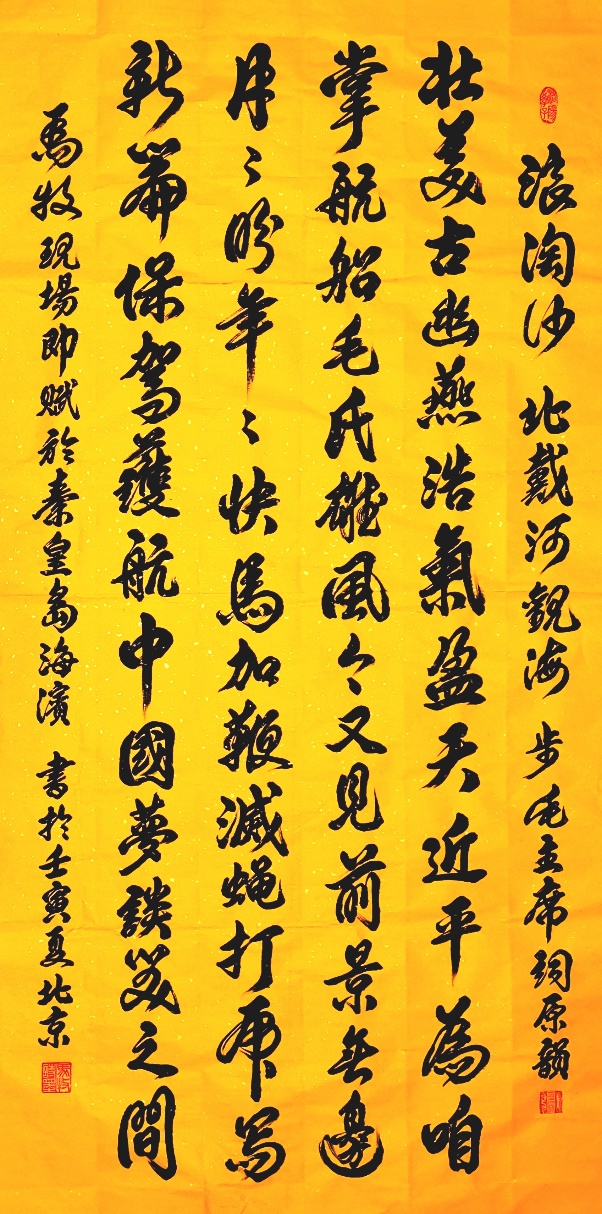 浪淘沙 北戴河觀海 步毛主席詞原韻
壯美古幽燕浩氣盈天近平為咱
掌航船毛氏雄風今又見前景無邊
月〻盼年〻快馬加鞭滅蝇打虎写
新篇保駕護航中國夢談笑之間
馬牧現場即赋於秦皇島海濱 書於壬寅夏北京